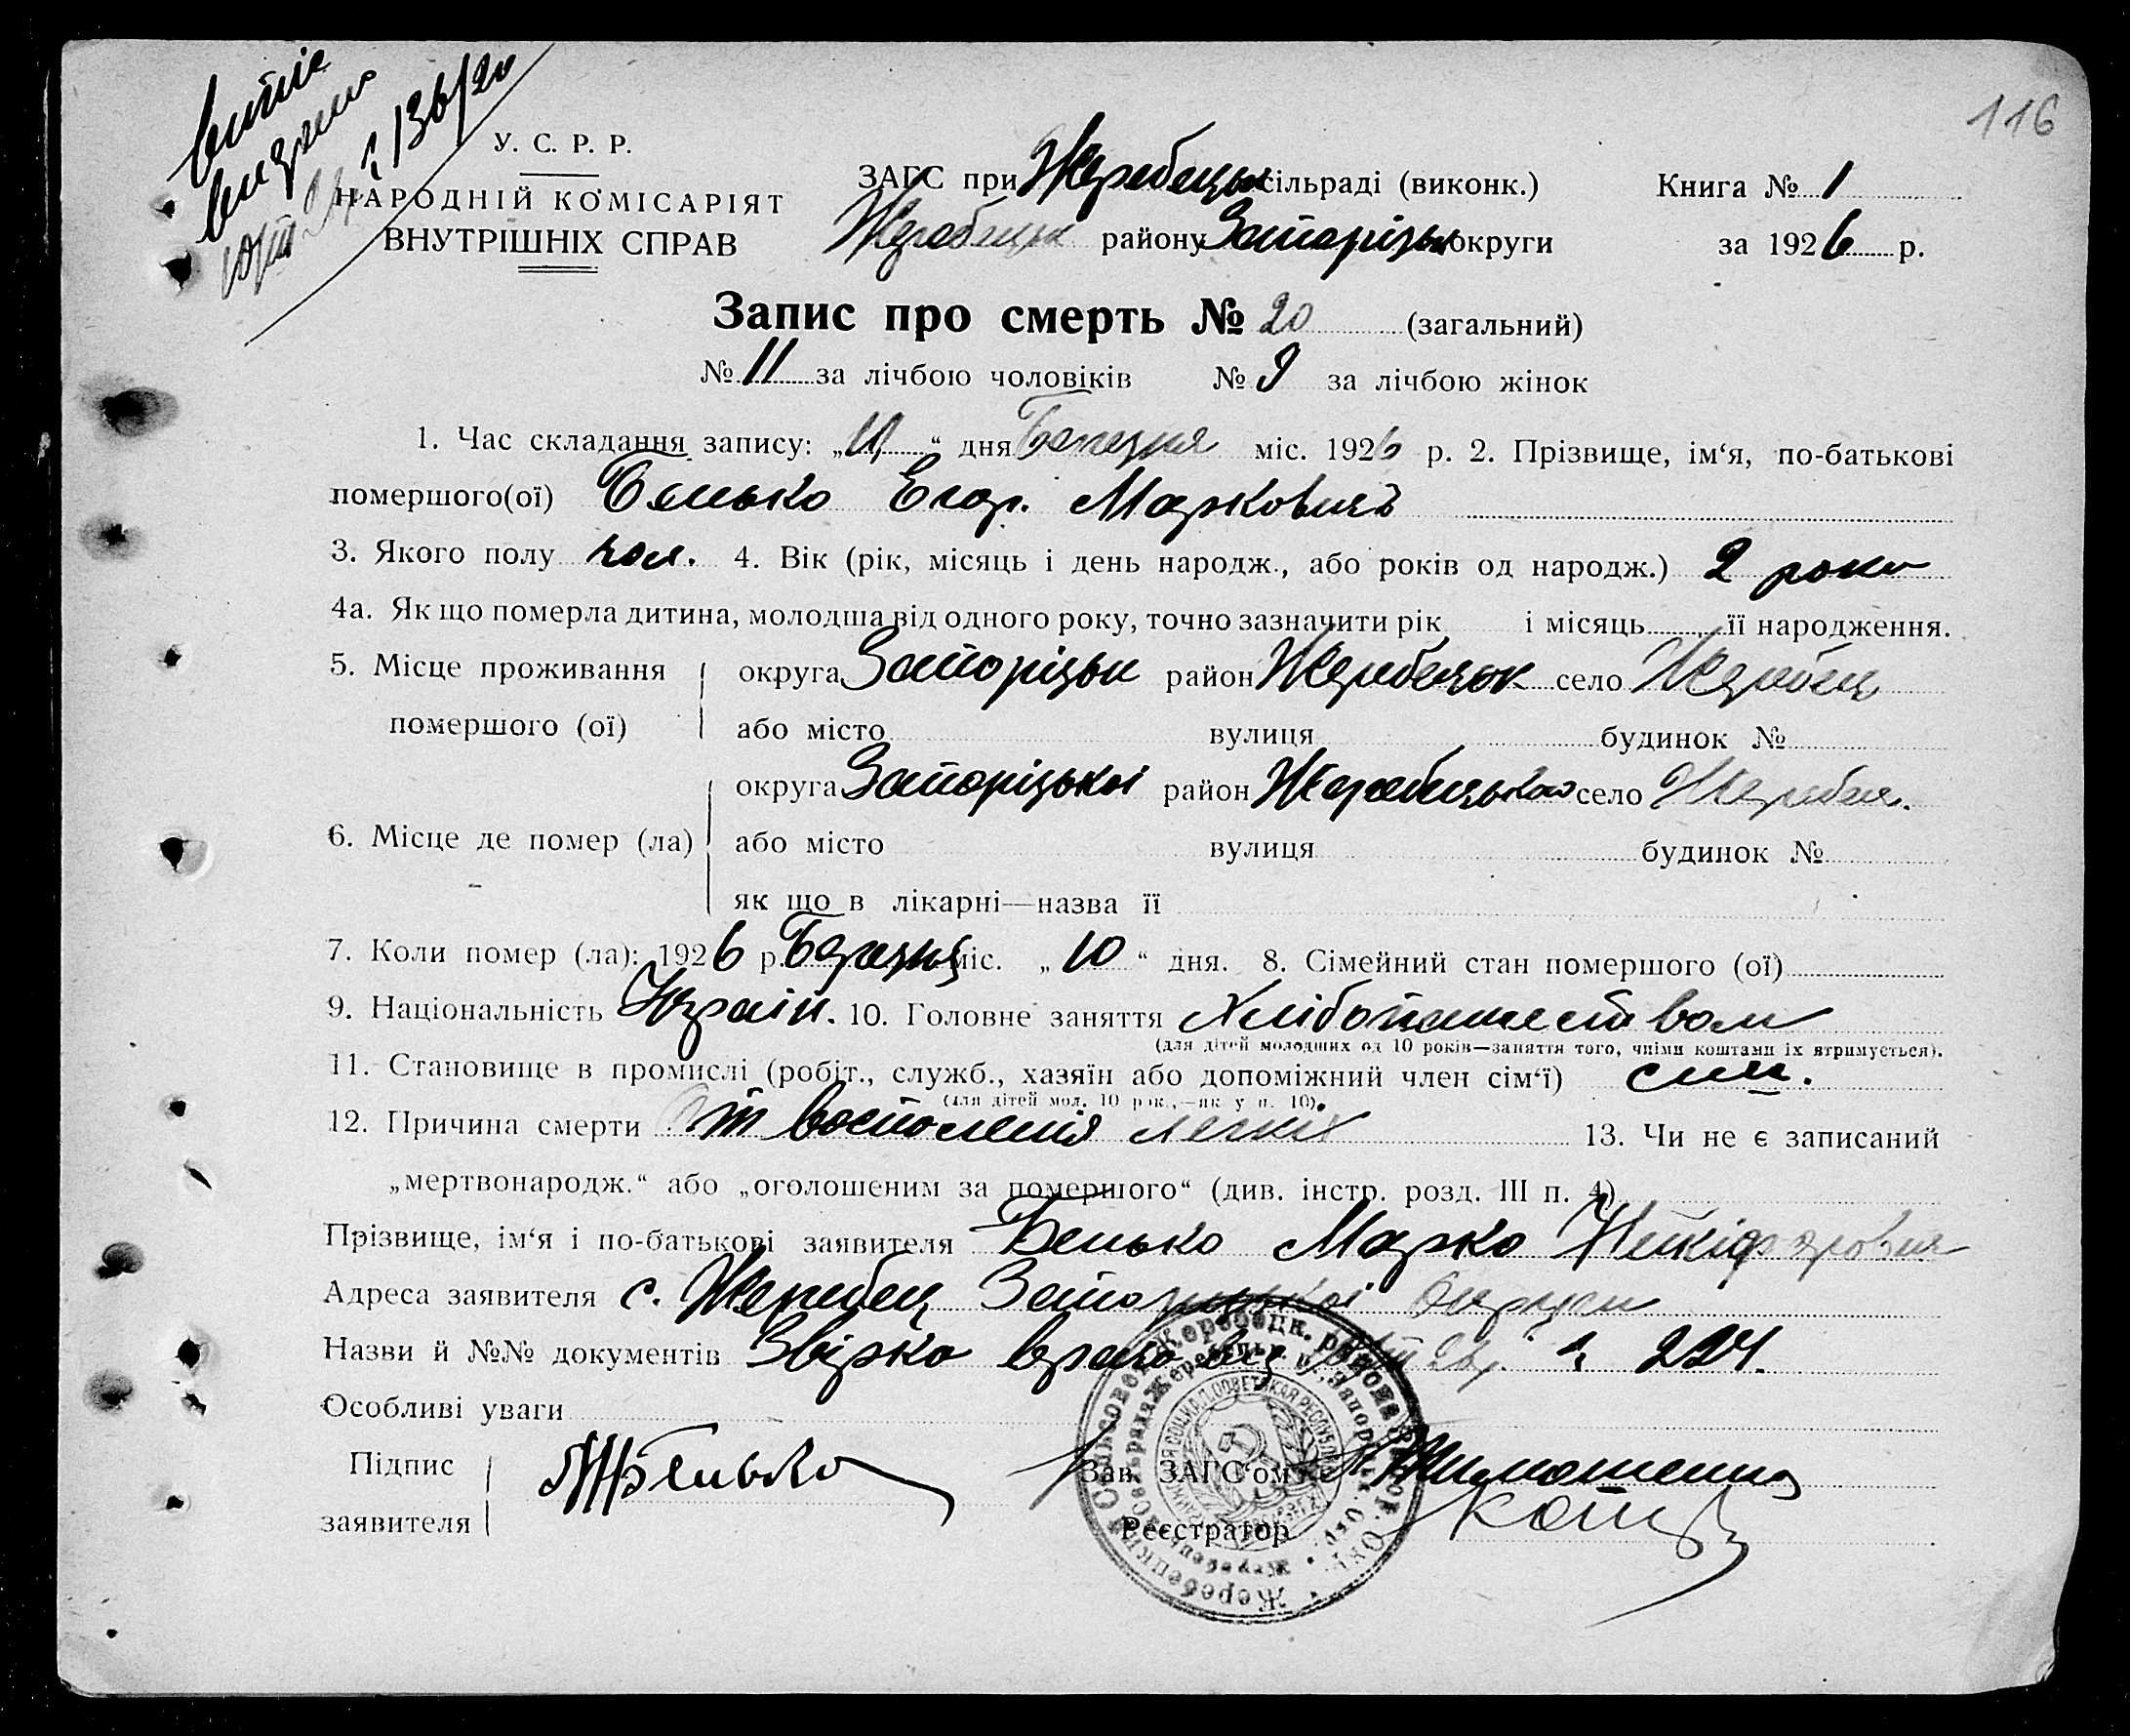 116
витяг
видано
№ 136/20
У. С. Р. Р.
НАРОДНІЙ КОМІСАРІЯТ
ВНУТРІШНІХ СПРАВ
ЗАГС при Жеребецьк сільраді (виконк.)
району Запорізьк округи
Книга № 1
за 1926 р.
Запис про смерть № 20 (загальний)
№ 11 за лічбою чоловіків № 9 за лічбою жінок
1. Час складання запису: „11“ дня Березня міс. 1926 р. 2. Прізвище, ім‘я, по-батькові
помершого(ої) Бенько Егор. Марковичъ
3. Якого полу чол. 4. Вік (рік, місяць і день народж., або років од народж.) 2 роки
4а. Як що померла дитина, молодша від одного року, точно зазначити рік і місяць її народження.
5. Місце проживання помершого (ої)
округа Запорізьк район Жеребецьк село Жеребец
або місто вулиця будинок №
6. Місце де помер (ла)
округа Запорізької район Жеребецького село Жеребец.
або місто вулиця будинок №
як що в лікарні—назва її
7. Коли помер (ла): 1926 р. Березня міс. „10“ дня. 8. Сімейний стан помершого (ої)
9. Національність Україн. 10. Головне заняття Хлібопашеством
(для дітей молодших од 10 років—заняття того, чиїми коштами їх втримується).
11. Становище в промислі (робіт., служб., хазяїн або допоміжний член сім‘ї) син.
(для дітей мол. 10 рок.,—як у п. 10).
12. Причина смерти От воспаления легких 13. Чи не є записаний
„мертвонародж.“ або „оголошеним за помершого“ (див. інстр. розд. III п. 4)
Прізвище, ім‘я і по-батькові заявителя Бенько Марко Никифорович
Адреса заявителя с. Жеребец Запорізької округи
Назви й №№ документів врача № 224.
Особливі уваги
Підпис заявителя МБенько
Зав. ЗАГС‘ом Тимошенко
Реєстратор